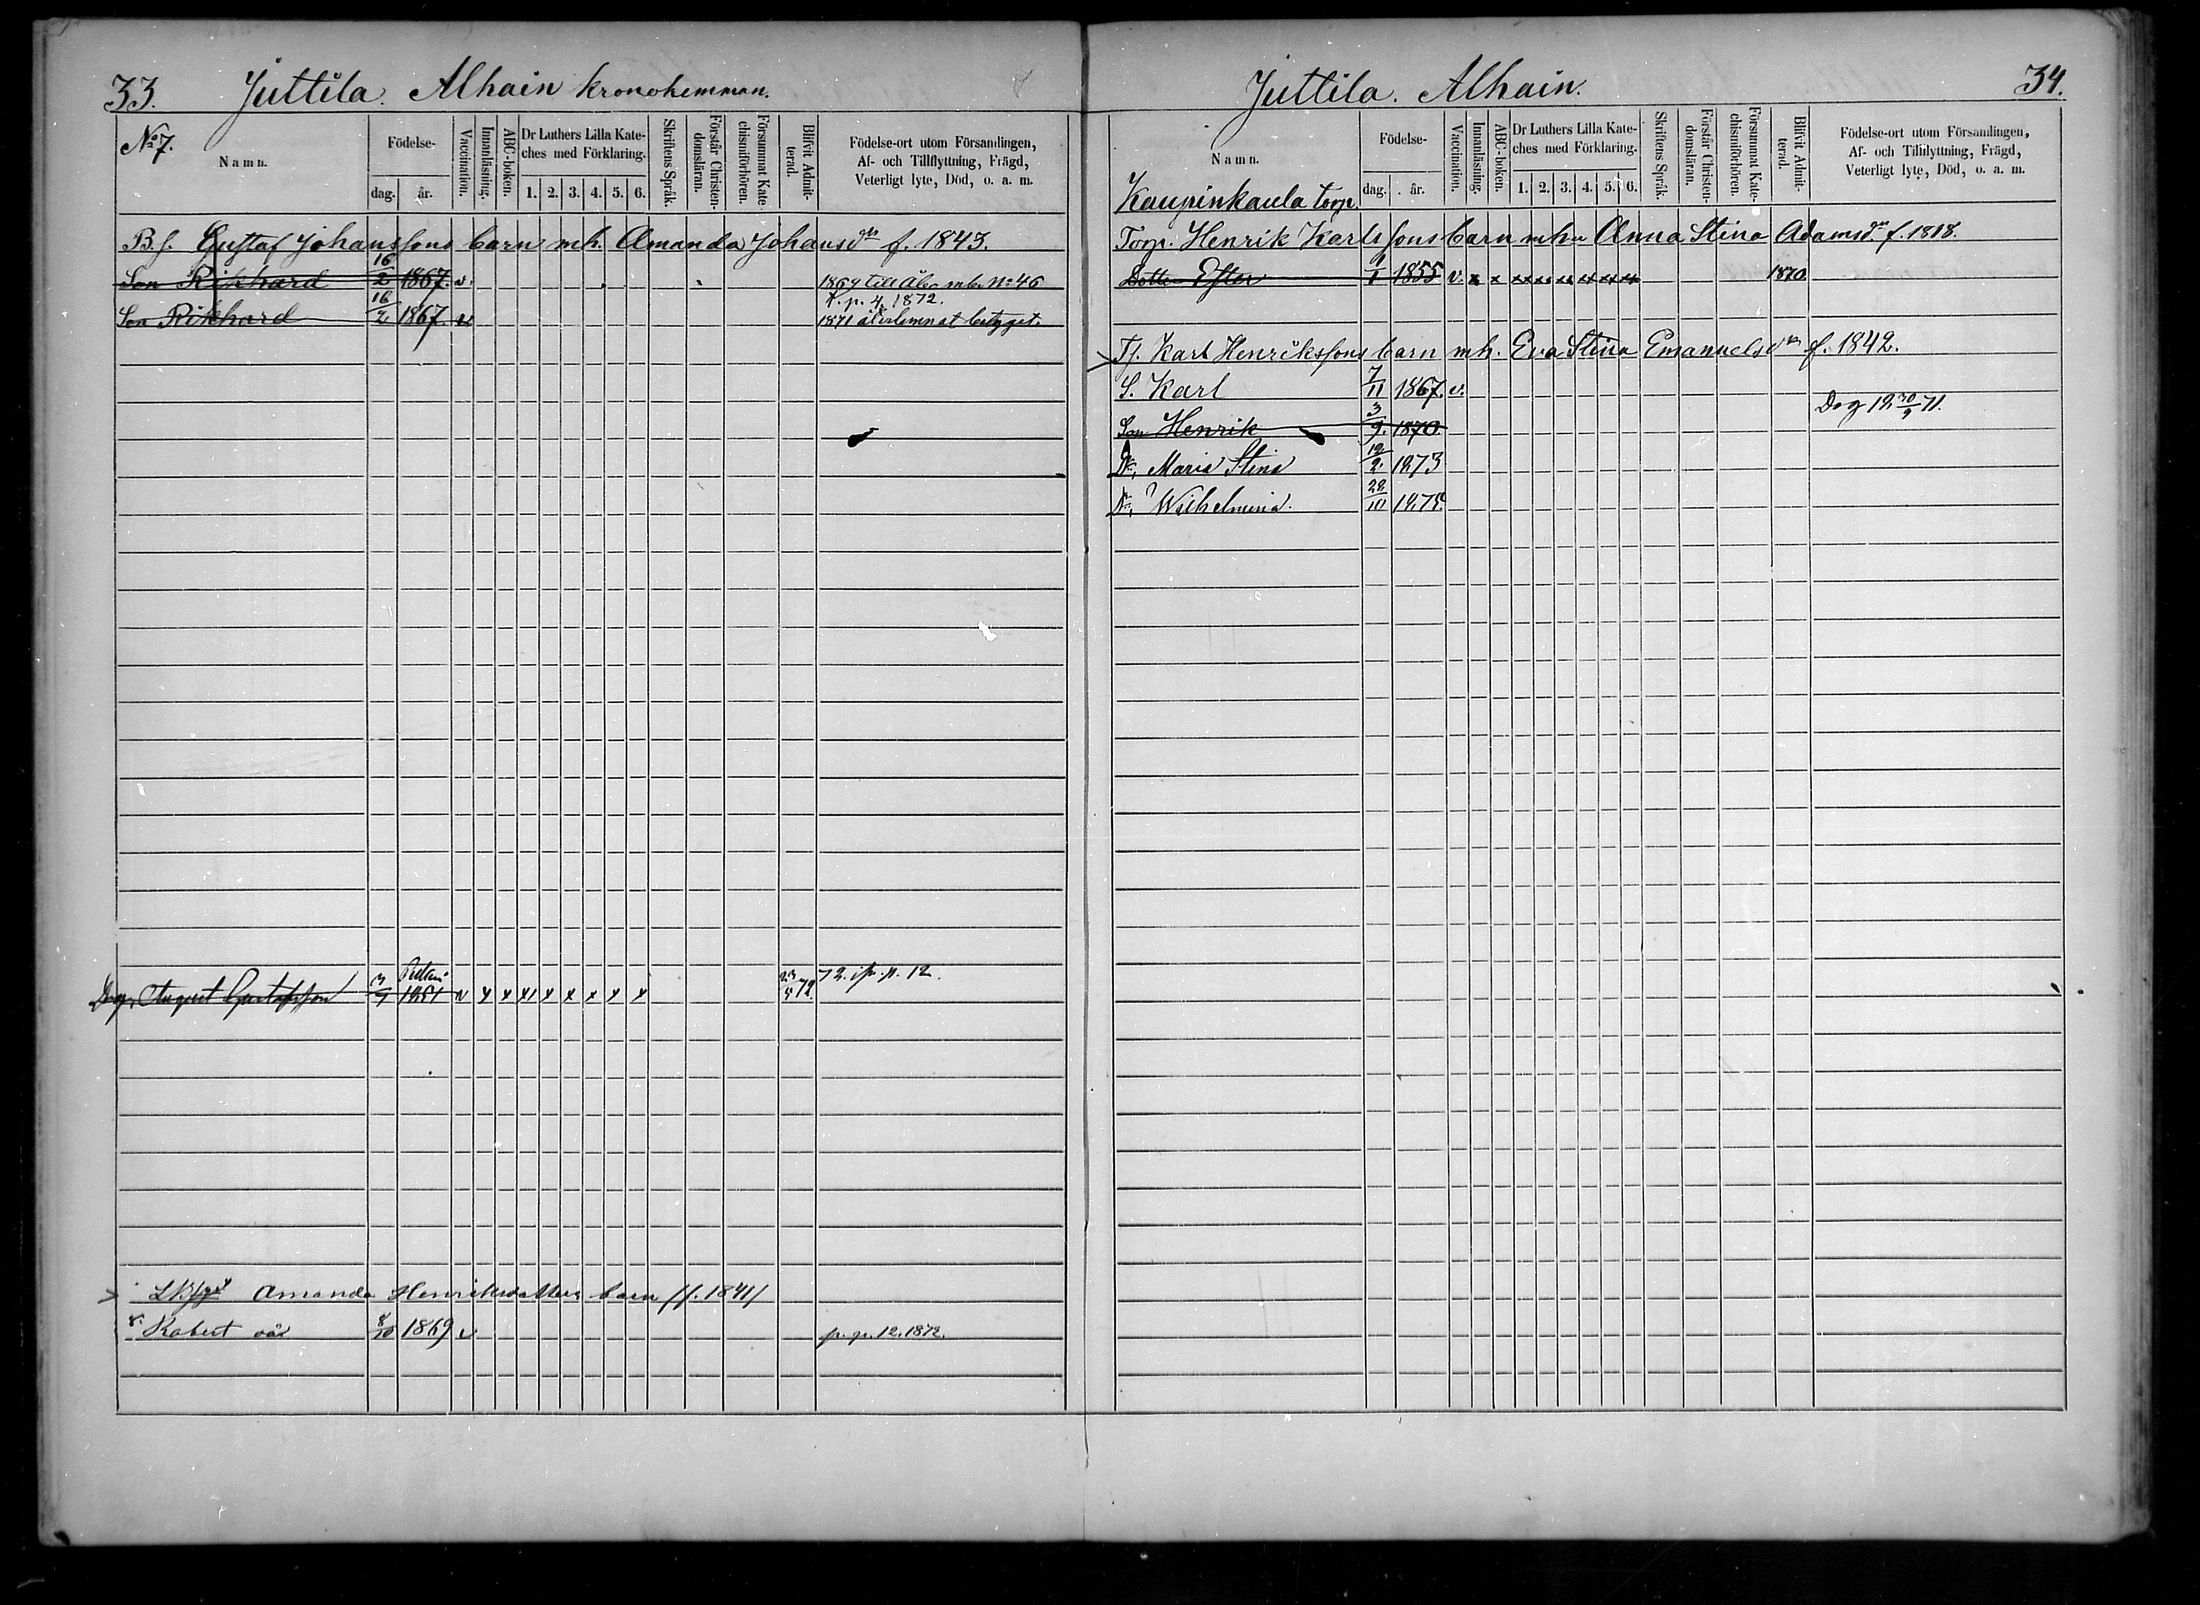 33. Juttila. Alhain kronohemman.
No 7.
Namn.
Födelse-
dag. år.
Vaccination.
Innanläsning.
ABC-boken.
Dr Luthers Lilla Kate-
ches med Förklaring.
1. 2. 3. 4. 5. 6.
Skriftens Språk.
Förstår Christen-
domsläran.
Försummat Kate-
chismiförhören.
Blifvit Admit-
terad.
Födelse-ort utom Församlingen,
Af- och Tillflyttning, Frägd,
Veterligt lyte, Död, o. a. m.
B.s. Gustaf Johanssons barn mh. Amanda Johansdr f. 1843.
Son Rikhard 16/2 1867. v. 1869 till Åbo mbr No 46
K. p. 4 1872.
Son Rikhard 16/2 1867. v 1871 återlemnat betyget.
Drg. August Gustafsson 3/9 1851 v x x x x x x x x 23/5 72. 72. i p. p. 12.
Amanda Henriksdotters barn /f. 1841/
Robert oä 8/10 1869 v p. p. 12. 1872.
Juttila. Alhain. 34.
Namn.
Födelse-
dag. år.
Vaccination.
Innanläsning.
ABC-boken.
Dr Luthers Lilla Kate-
ches med Förklaring.
1. 2. 3. 4. 5. 6.
Skriftens Språk.
Förstår Christen-
domsläran.
Försummat Kate-
chismiförhören.
Blifvit Admit-
terad.
Födelse-ort utom Församlingen,
Af- och Tillflyttning, Frägd,
Veterligt lyte, Död, o. a. m.
Kaupinkaula torp.
Torp. Henrik Karlssons barn mh Anna Stina Adamsdr f. 1818.
Dotter Ester 1855 v. x x xx xx xx xx xx xx 1870.
Tj. Karl Henrikssons barn mh. Eva Stina Emanuelsdr f. 1842.
S. Karl 7/11 1867. v.
Son Henrik 3/9. 1870. Dog 30/9 71.
Dr. Maria Stina 12/2. 1873
Dr. Wilhelmina. 28/10 1875.